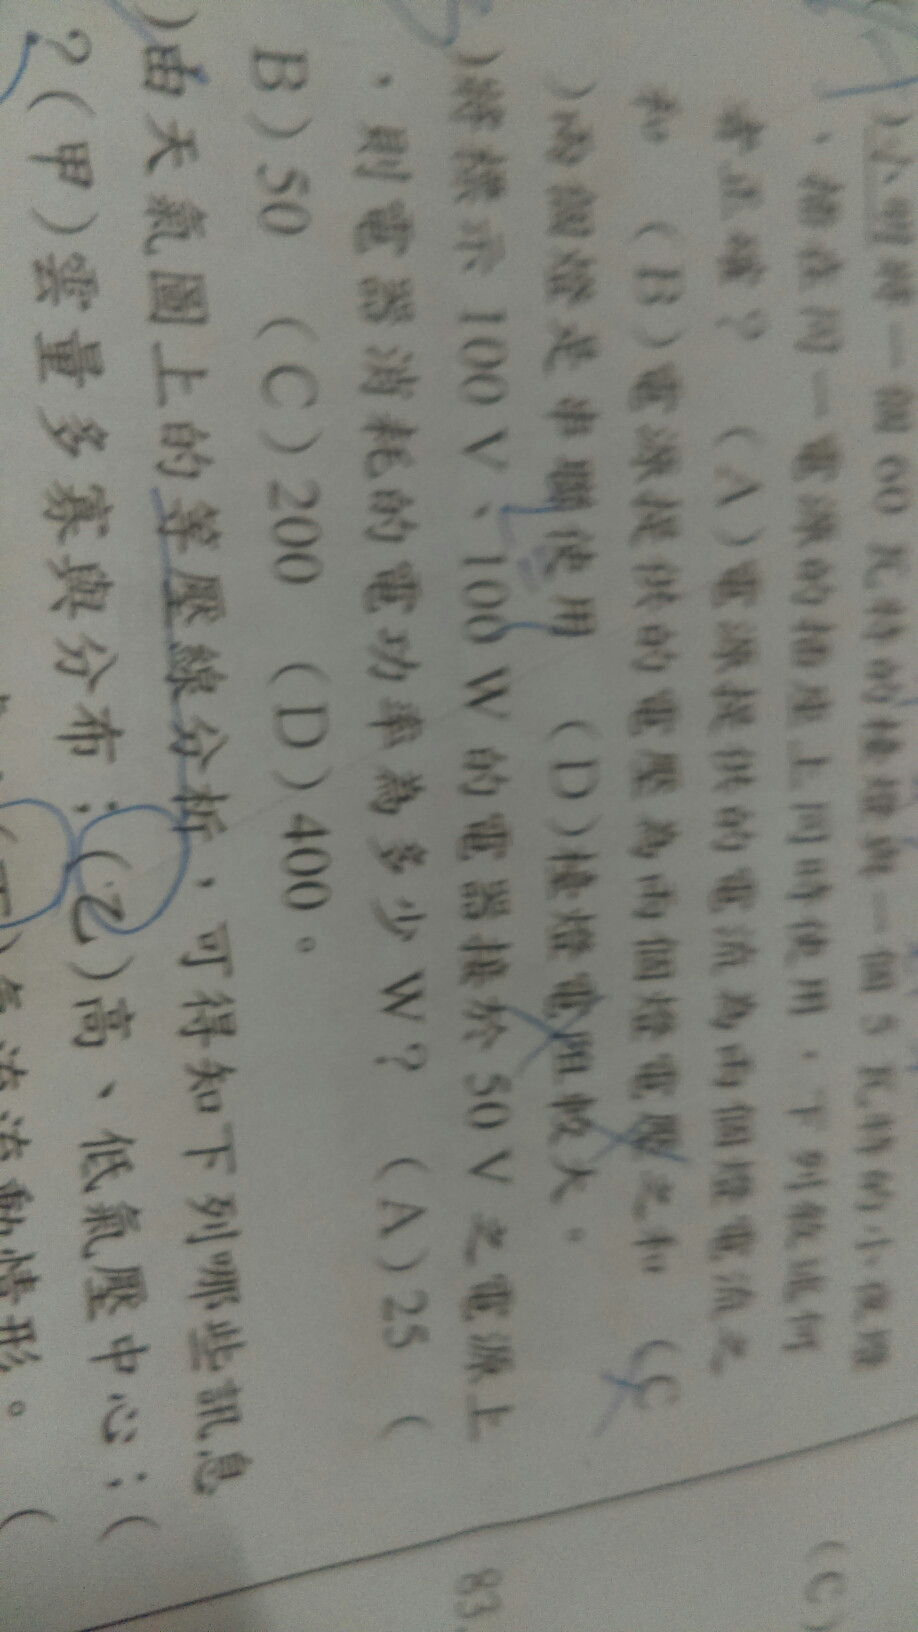 )小明將一個 60 瓦特的檯燈與一個 5 瓦特的小夜燈
,插在同一電源的插座上同時使用,下列敘述何
者正確? (A)電源提供的電流為兩個燈電流之
和 (B)電源提供的電壓為兩個燈電壓之和 (C
)兩個燈是串聯使用 (D)檯燈電阻較大。
)將標示 100 V、100 W 的電器接於 50 V 之電源上
,則電器消耗的電功率為多少 W? (A)25 (
B)50 (C)200 (D)400。
)由天氣圖上的等壓線分析,可得知下列哪些訊息
?(甲)雲量多寡與分布;(乙)高、低氣壓中心;(
動情形。(
(C)
83.